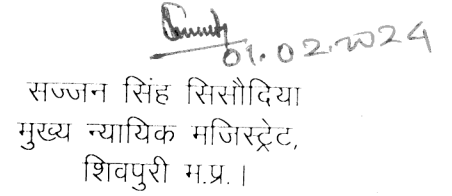 01.02.2024
सज्जन सिंह सिसौदिया
मुख्य न्यायिक मजिस्ट्रेट,
शिवपुरी म.प्र.।